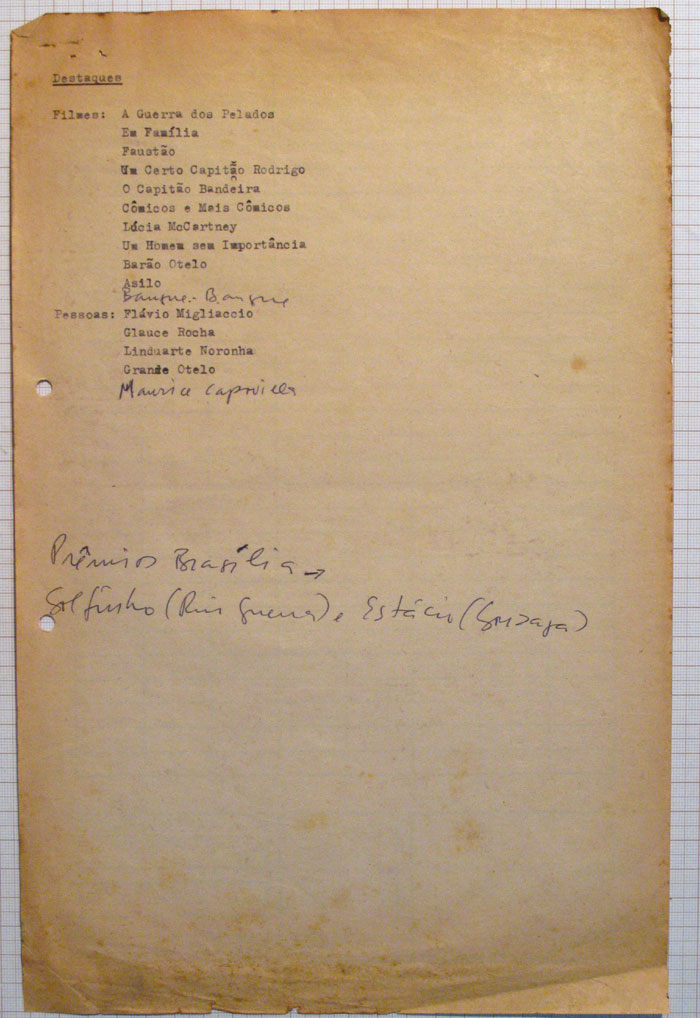 Destaques
Filmes: A Guerra dos Pelados
Em Família
Faustão
Um Certo Capitão Rodrigo
O Capitão Bandeira
Cômicos e Mais Cômicos
Lúcia McCartney
Um Homem sem Importância
Barão Otelo
Asilo
Bangue-Bangue
Pessoas: Flávio Migliaccio
Glauce Rocha
Linduarte Noronha
Grande Otelo
Maurice Capovilla
Prêmios Brasília →
Golfinho (Rui Guerra) e Estácio (Gonzaga)